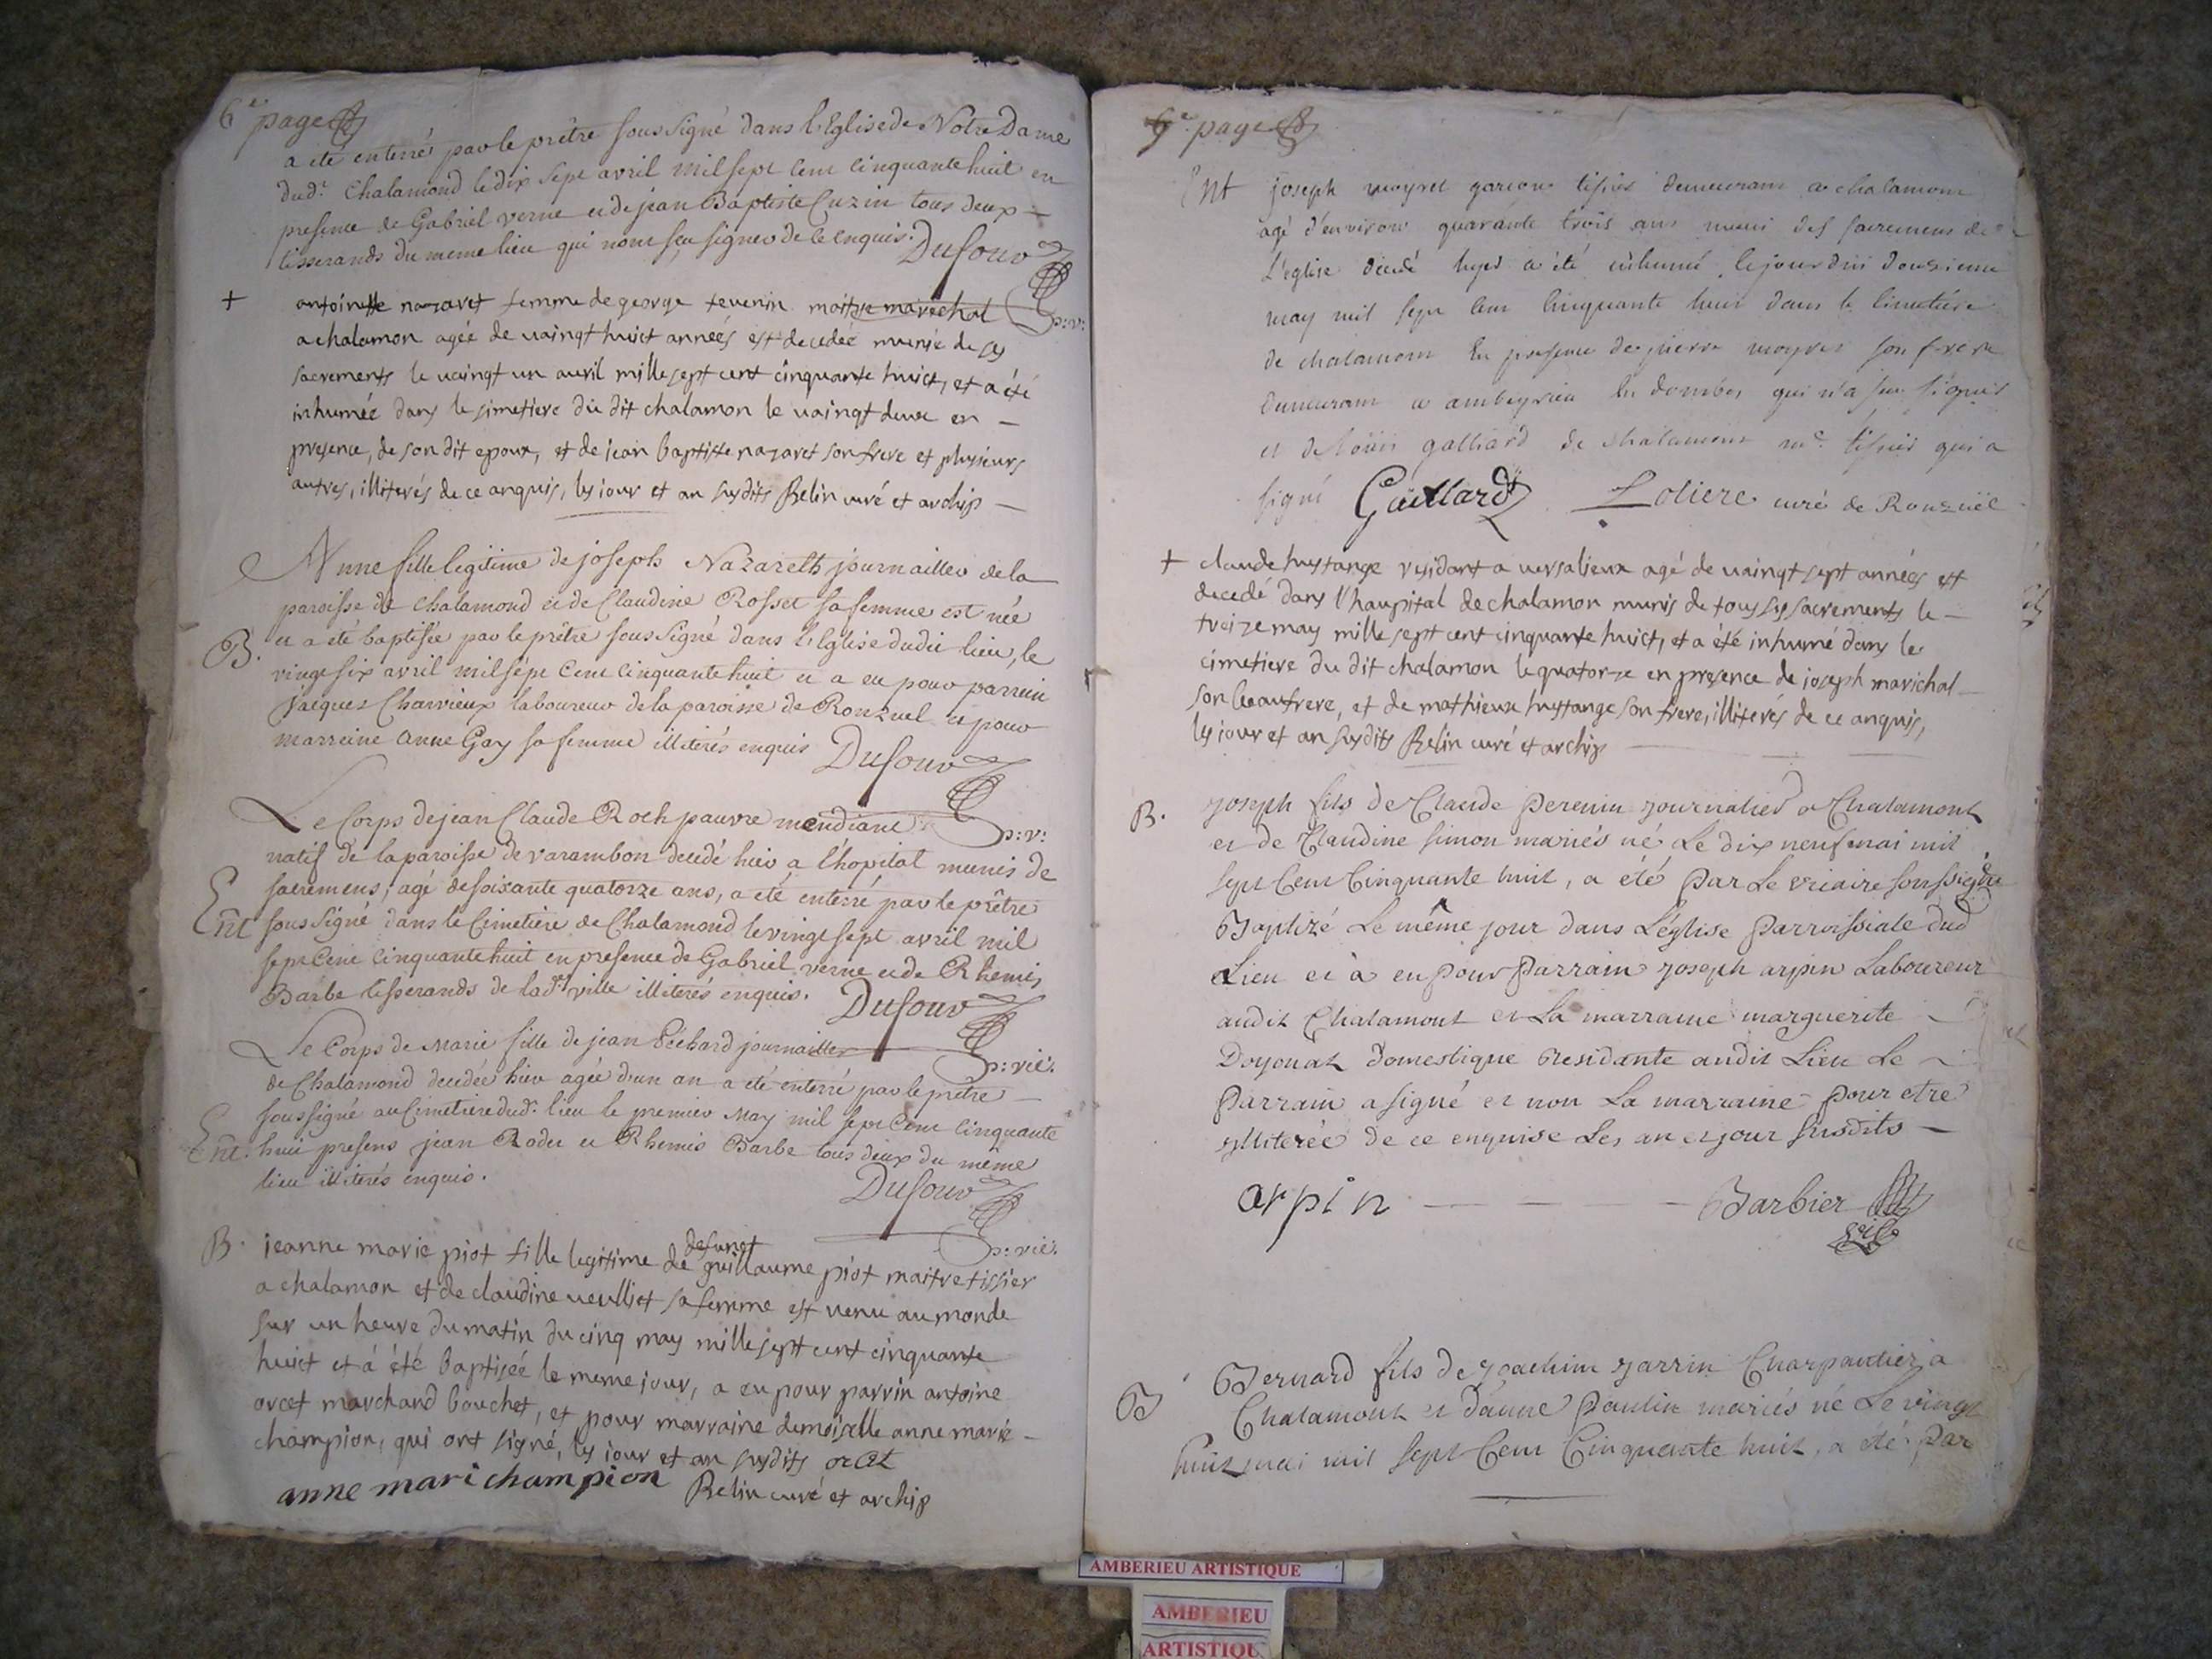 6e page
a eté enterré par le prêtre sous signé dans l'Eglise de Notre Dame
dud.t Chalamond le dix sept avril mil sept cent cinquante huit en
presence de Gabriel verne et de jean Baptiste Cuzin tous deux
tisserands du meme lieu qui n'ont sçu signer de ce enquis. Dufour
p: v:
+ antoinette nazaret femme de george tevenin maitre marechal
a chalamon agée de vaingt huict années est decedée munie de ses
sacrements le vaingt un auril mille sept cent cinquante huict, et a été
inhumée dans le simetiere du dit chalamon le vaingt deux en
presence, de son dit epoux, et de jean baptiste nazaret son frere et plusieurs
autres, illiterés de ce anquis, les iour et an susdits Belin curé et archip
Anne fille legitime de joseph Nazareth journailler de la
paroisse de chalamond et de Claudine Rosset sa femme est née
B. et a eté baptisée par le prêtre sous signé dans l'Eglise dudit lieu, le
vingt six avril mil sept cent cinquante huit et a eu pour parrein
jacques Charvieux laboureur de la paroisse de Ronzuel et pour
marreine anne Gay sa femme illiterés enquis Dufour
p: v:
Le Corps de jean Claude Roch pauvre mendiant
natif de la paroisse de varambon decedé hier a l'hopital munis de
sacremens, agé de soixante quatorze ans, a eté enterré par le prêtre
Ent sous signé dans le Cimetiere de Chalamond le vingt sept avril mil
sept cent cinquante huit en presence de Gabriel verne et de Rhemis
Barbe tisserands de lad.te ville illiterés enquis. Dufour
p: vic.
Le Corps de Marie fille de jean Péchard journailler
de Chalamond decedée hier agée d'un an a eté enterré par le prêtre
sous signé au Cimetiere dud.t lieu le premier May mil sept Cent cinquante
Ent. huit presens jean Rodet et Rhemis Barbe tous deux du même
lieu illiterés enquis. Dufour
p: vic.
B. jeanne marie piot fille legitime de defunct guillaume piot maitre tissier
a chalamon et de claudine veulliet sa femme est venu au monde
sur un heure du matin du cinq may mille sept cent cinquante
huict et à été baptisée le meme jour, a eu pour parrin antoine
orcet marchand bouchet, et pour marraine demoiselle anne marie
champion, qui ont signé, les iour et an susdits orcet
anne mari champion Belin curé et archip
7e page
Ent joseph moyret garçon tissier demeurant a chalamont
agé d'environ quarante trois ans muni des sacremens de
L'eglise décédé hyer a été inhumé le jourdui douzieme
may mil sept cent cinquante huit dans le cimetière
de chalamont en presence de pierre moyret son frere
demeurant a ambeyrieu en dombes qui n'a sçu signer
et de Loüis galliard de chalamont m.e tissier qui a
signé Gaillard Lotiere curé de Ronzuël
+ claude hustange residant a versalieux agé de vaingt sept années est
decedé dans l'haupital de chalamon munis de tous ses sacrements le
treize may mille sept cent cinquante huict, et a été inhumé dans le
cimetiere du dit chalamon le quatorze en presence de joseph marichal
son beaufrere, et de mathieux hustange son frere, illiterés de ce anquis,
les iour et an susdits Belin curé et archip
B. joseph fils de Claude perenin journalier a Chalamont
et de Claudine simon mariés né Le dix neuf mai mil
sept Cent Cinquante huit, a été par Le vicaire soussigné
Baptizé Le même jour dans L'église parroissiale dud
Lieu et à eu pour parrain joseph arpin Laboureur
audit Chalamont et La marraine marguerite
Doyonat domestique residante audit Lieu Le
parrain a signé et non La marraine pour etre
illiterée de ce enquise Les an et jour susdits
arpin Barbier vic
Bernard fils de joachim jarrin Charpantier a
B Chalamont et d'anne paulin mariés né Le vingt
huit mai mil sept Cent Cinquante huit, a été par
AMBERIEU ARTISTIQUE
AMBERIEU
ARTISTIQU